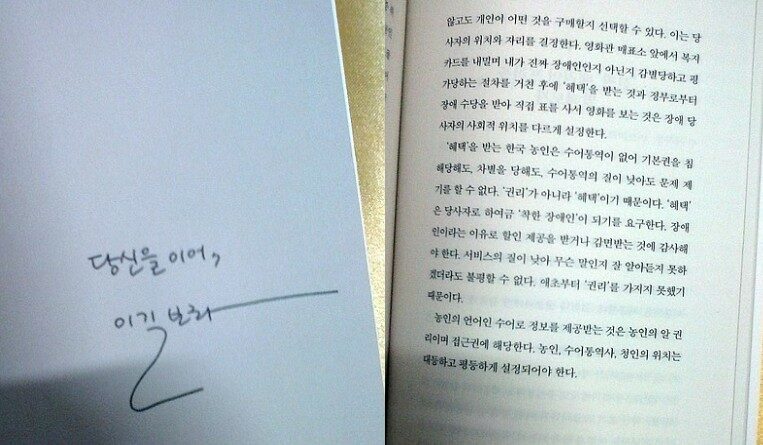 당신을 이어,
이길보라
않고도 개인이 어떤 것을 구매할지 선택할 수 있다. 이는 당
사자의 위치와 자리를 결정한다. 영화관 매표소 앞에서 복지
카드를 내밀며 내가 진짜 장애인인지 아닌지 감별당하고 평
가당하는 절차를 거친 후에 ‘혜택’을 받는 것과 정부로부터
장애 수당을 받아 직접 표를 사서 영화를 보는 것은 장애 당
사자의 사회적 위치를 다르게 설정한다.
‘혜택’을 받는 한국 농인은 수어통역이 없어 기본권을 침
해당해도, 차별을 당해도, 수어통역의 질이 낮아도 문제 제
기를 할 수 없다. ‘권리’가 아니라 ‘혜택’이기 때문이다. ‘혜택’
은 당사자로 하여금 ‘착한 장애인’이 되기를 요구한다. 장애
인이라는 이유로 할인 제공을 받거나 감면받는 것에 감사해
야 한다. 서비스의 질이 낮아 무슨 말인지 잘 알아듣지 못하
겠더라도 불평할 수 없다. 애초부터 ‘권리’를 가지지 못했기
때문이다.
농인의 언어인 수어로 정보를 제공받는 것은 농인의 알 권
리이며 접근권에 해당한다. 농인, 수어통역사, 청인의 위치는
대등하고 평등하게 설정되어야 한다.